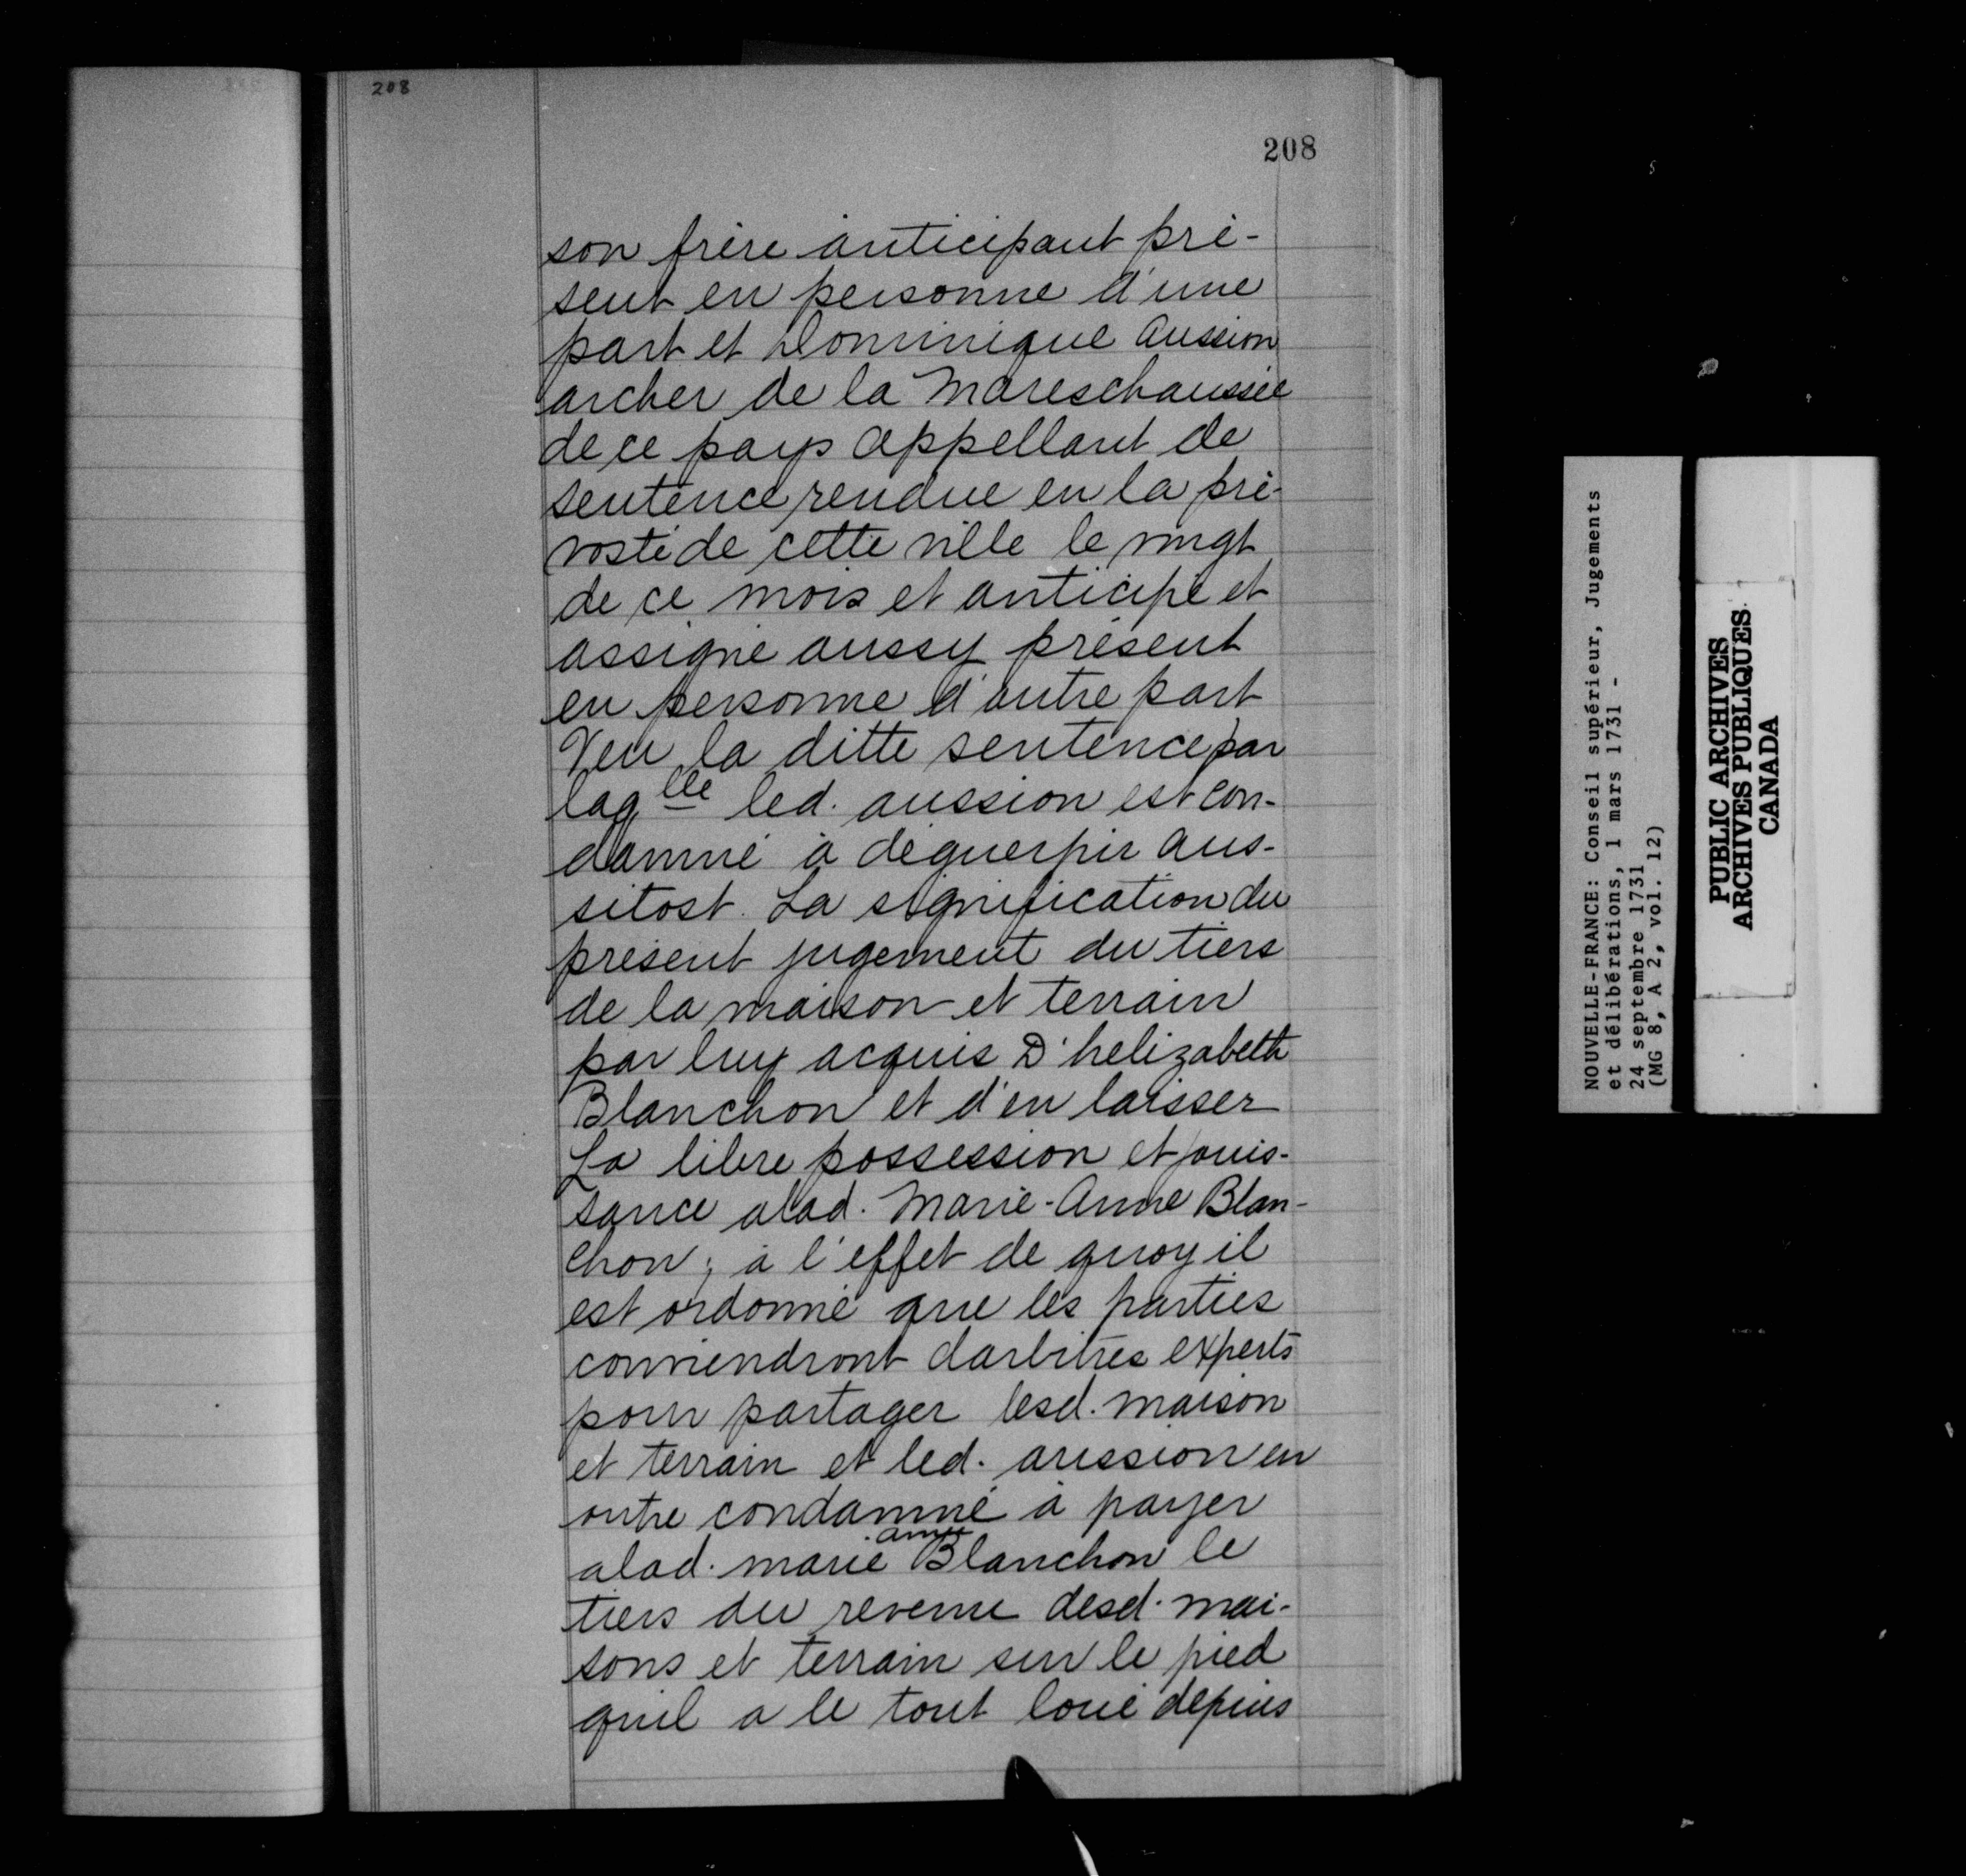 208
208
son frère anticipant pré-
sent en personne d'une
part et Dominique Aussion
archer de la Mareschaussée
de ce pays appellant de
sentence rendue en la pré-
vosté de cette ville le vingt
de ce mois et anticipé et
assigné aussy présent
en personne d'autre part
Veu la ditte sentence par
laqlle led. aussion est con-
damné à déguerpir aus-
sitost. La signification du
présent jugement du tiers
de la maison et terrain
par luy acquis D'helizabeth
Blanchon et d'en laisser
La libre possession et jouis-
sance alad. Marie-Anne Blan-
chon; à l'effet de quoy il
est ordonné que les parties
conviendront darbitres experts
pour partager lesd. maison
et terrain et led. aussion en
outre condamné à payer
alad. marie anne Blanchon le
tiers du revenu desd. mai-
sons et terrain sur le pied
quil a le tout loué depuis
NOUVELLE-FRANCE: Conseil supérieur, Jugements
et délibérations, 1 mars 1731 -
24 septembre 1731
(MG 8, A 2, vol. 12)
PUBLIC ARCHIVES
ARCHIVES PUBLIQUES
CANADA